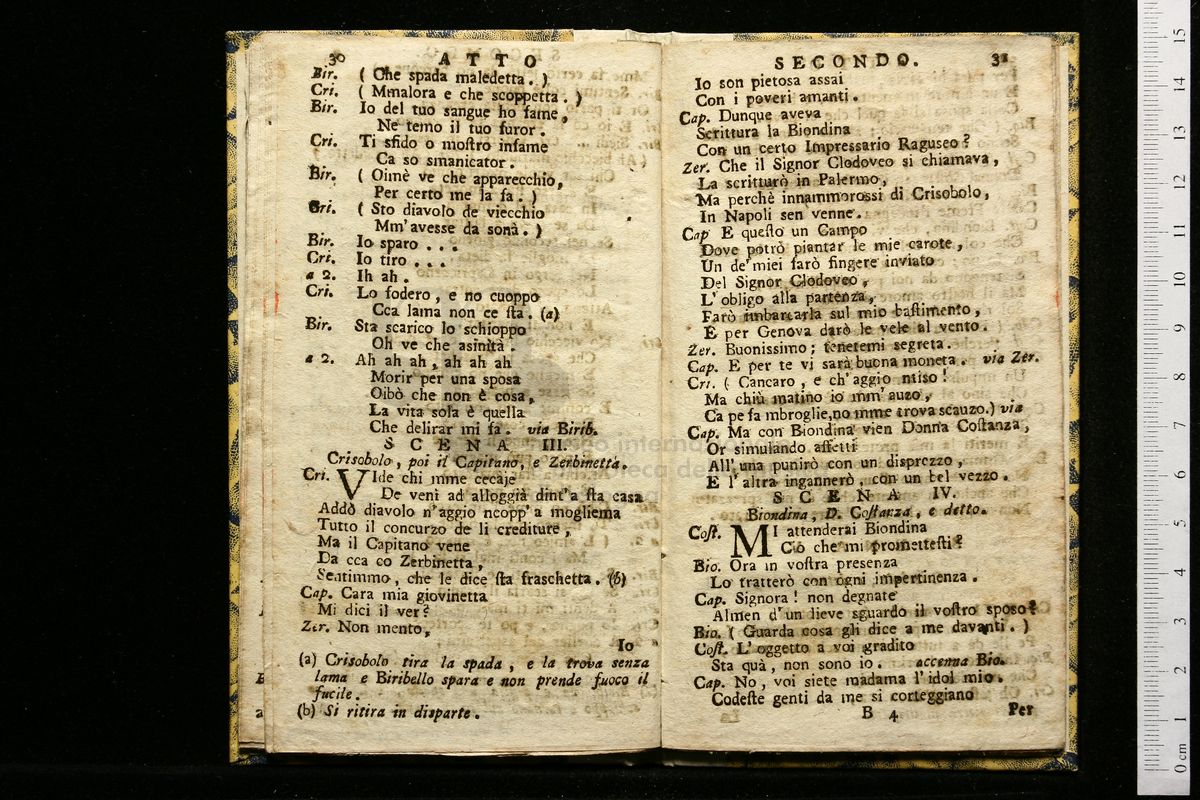 30 ATTO
Bir. ( Che spada maledetta. )
Cri. ( Mmalora e che scoppetta. )
Bir. Io del tuo sangue ho fame,
Ne temo il tuo furor.
Cri. Ti sfido o moſtro infame
Ca so smanicator.
Bir. ( Oimè ve che apparecchio,
Per certo me la fa. )
Cri. ( Sto diavolo de viecchio
Mm'avesse da sonà. )
Bir. Io sparo . . .
Cri. Io tiro . . .
a 2. Ih ah.
Cri. Lo fodero, e no cuoppo
Cca lama non ce ſta. (a)
Bir. Sta scarico lo schioppo
Oh ve che asinità.
a 2. Ah ah ah, ah ah ah
Morir per una sposa
Oibò che non è cosa,
La vita sola è quella
Che delirar mi fa. via Birib.
SCENA III.
Crisobolo, poi il Capitano, e Zerbinetta.
Cri. VIde chi mme cecaje
De venì ad alloggià dint'a ſta casa
Addò diavolo n'aggio ncopp'a mogliema
Tutto il concurzo de li crediture,
Ma il Capitano vene
Da cca co Zerbinetta,
Sentimmo, che le dice ſta fraschetta. (b)
Cap. Cara mia giovinetta
Mi dici il ver?
Zer. Non mento,
Io
(a) Crisobolo tira la spada, e la trova senza
lama e Biribello spara e non prende fuoco il
fucile.
(b) Si ritira in disparte.
SECONDO. 31
Io son pietosa assai
Con i poveri amanti.
Cap. Dunque aveva
Scrittura la Biondina
Con un certo Impressario Raguseo?
Zer. Che il Signor Clodoveo si chiamava,
La scritturò in Palermo,
Ma perchè innammorossi di Crisobolo,
In Napoli sen venne.
Cap E queſto un Campo
Dove potrò piantar le mie carote,
Un de' miei farò fingere inviato
Del Signor Clodoveo,
L'obligo alla partenza,
Farò imbarcarla sul mio baſtimento,
E per Genova darò le vele al vento.
Zer. Buonissimo; tenetemi segreta.
Cap. E per te vi sarà buona moneta. via Zer.
Cri. ( Cancaro, e ch'aggio ntiso!
Ma chiù matino io mm'auzo,
Ca pe fa mbroglie, no mme trova scauzo.) via
Cap. Ma con Biondina vien Donna Coſtanza,
Or simulando affetti
All'una punirò con un disprezzo,
E l'altra ingannerò, con un bel vezzo.
SCENA IV.
Biondina, D. Coſtanza, e detto.
Coſt. MI attenderai Biondina
Ciò che mi prometteſti?
Bio. Ora in voſtra presenza
Lo tratterò con ogni impertinenza.
Cap. Signora! non degnate
Almen d'un lieve sguardo il voſtro sposo?
Bio. ( Guarda cosa gli dice a me davanti. )
Coſt. L'oggetto a voi gradito
Sta quà, non sono io. accenna Bio.
Cap. No, voi siete madama l'idol mio.
Codeſte genti da me si corteggiano
B 4 Per